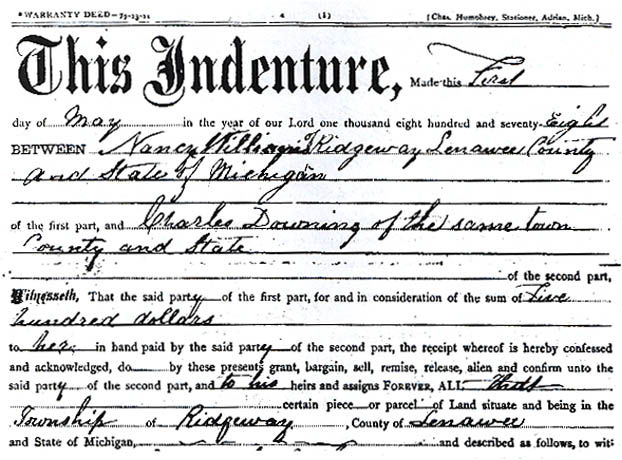 *WARRANTY DEED—79-13-21 4 (1) (Chas. Humphrey, Stationer, Adrian, Mich.)
This Indenture, Made this First
day of May in the year of our Lord one thousand eight hundred and seventy-Eight
BETWEEN Nancy Williams of Ridgeway Lenawee County
and State of Michigan
of the first part, and Charles Downing of the same town
County and State
of the second part,
Witnesseth, That the said party of the first part, for and in consideration of the sum of Five
hundred dollars
to her in hand paid by the said party of the second part, the receipt whereof is hereby confessed
and acknowledged, do by these presents grant, bargain, sell, remise, release, alien and confirm unto the
said party of the second part, and to his heirs and assigns FOREVER, ALL that
certain piece or parcel of Land situate and being in the
Township of Ridgeway, County of Lenawee
and State of Michigan, and described as follows, to wit: